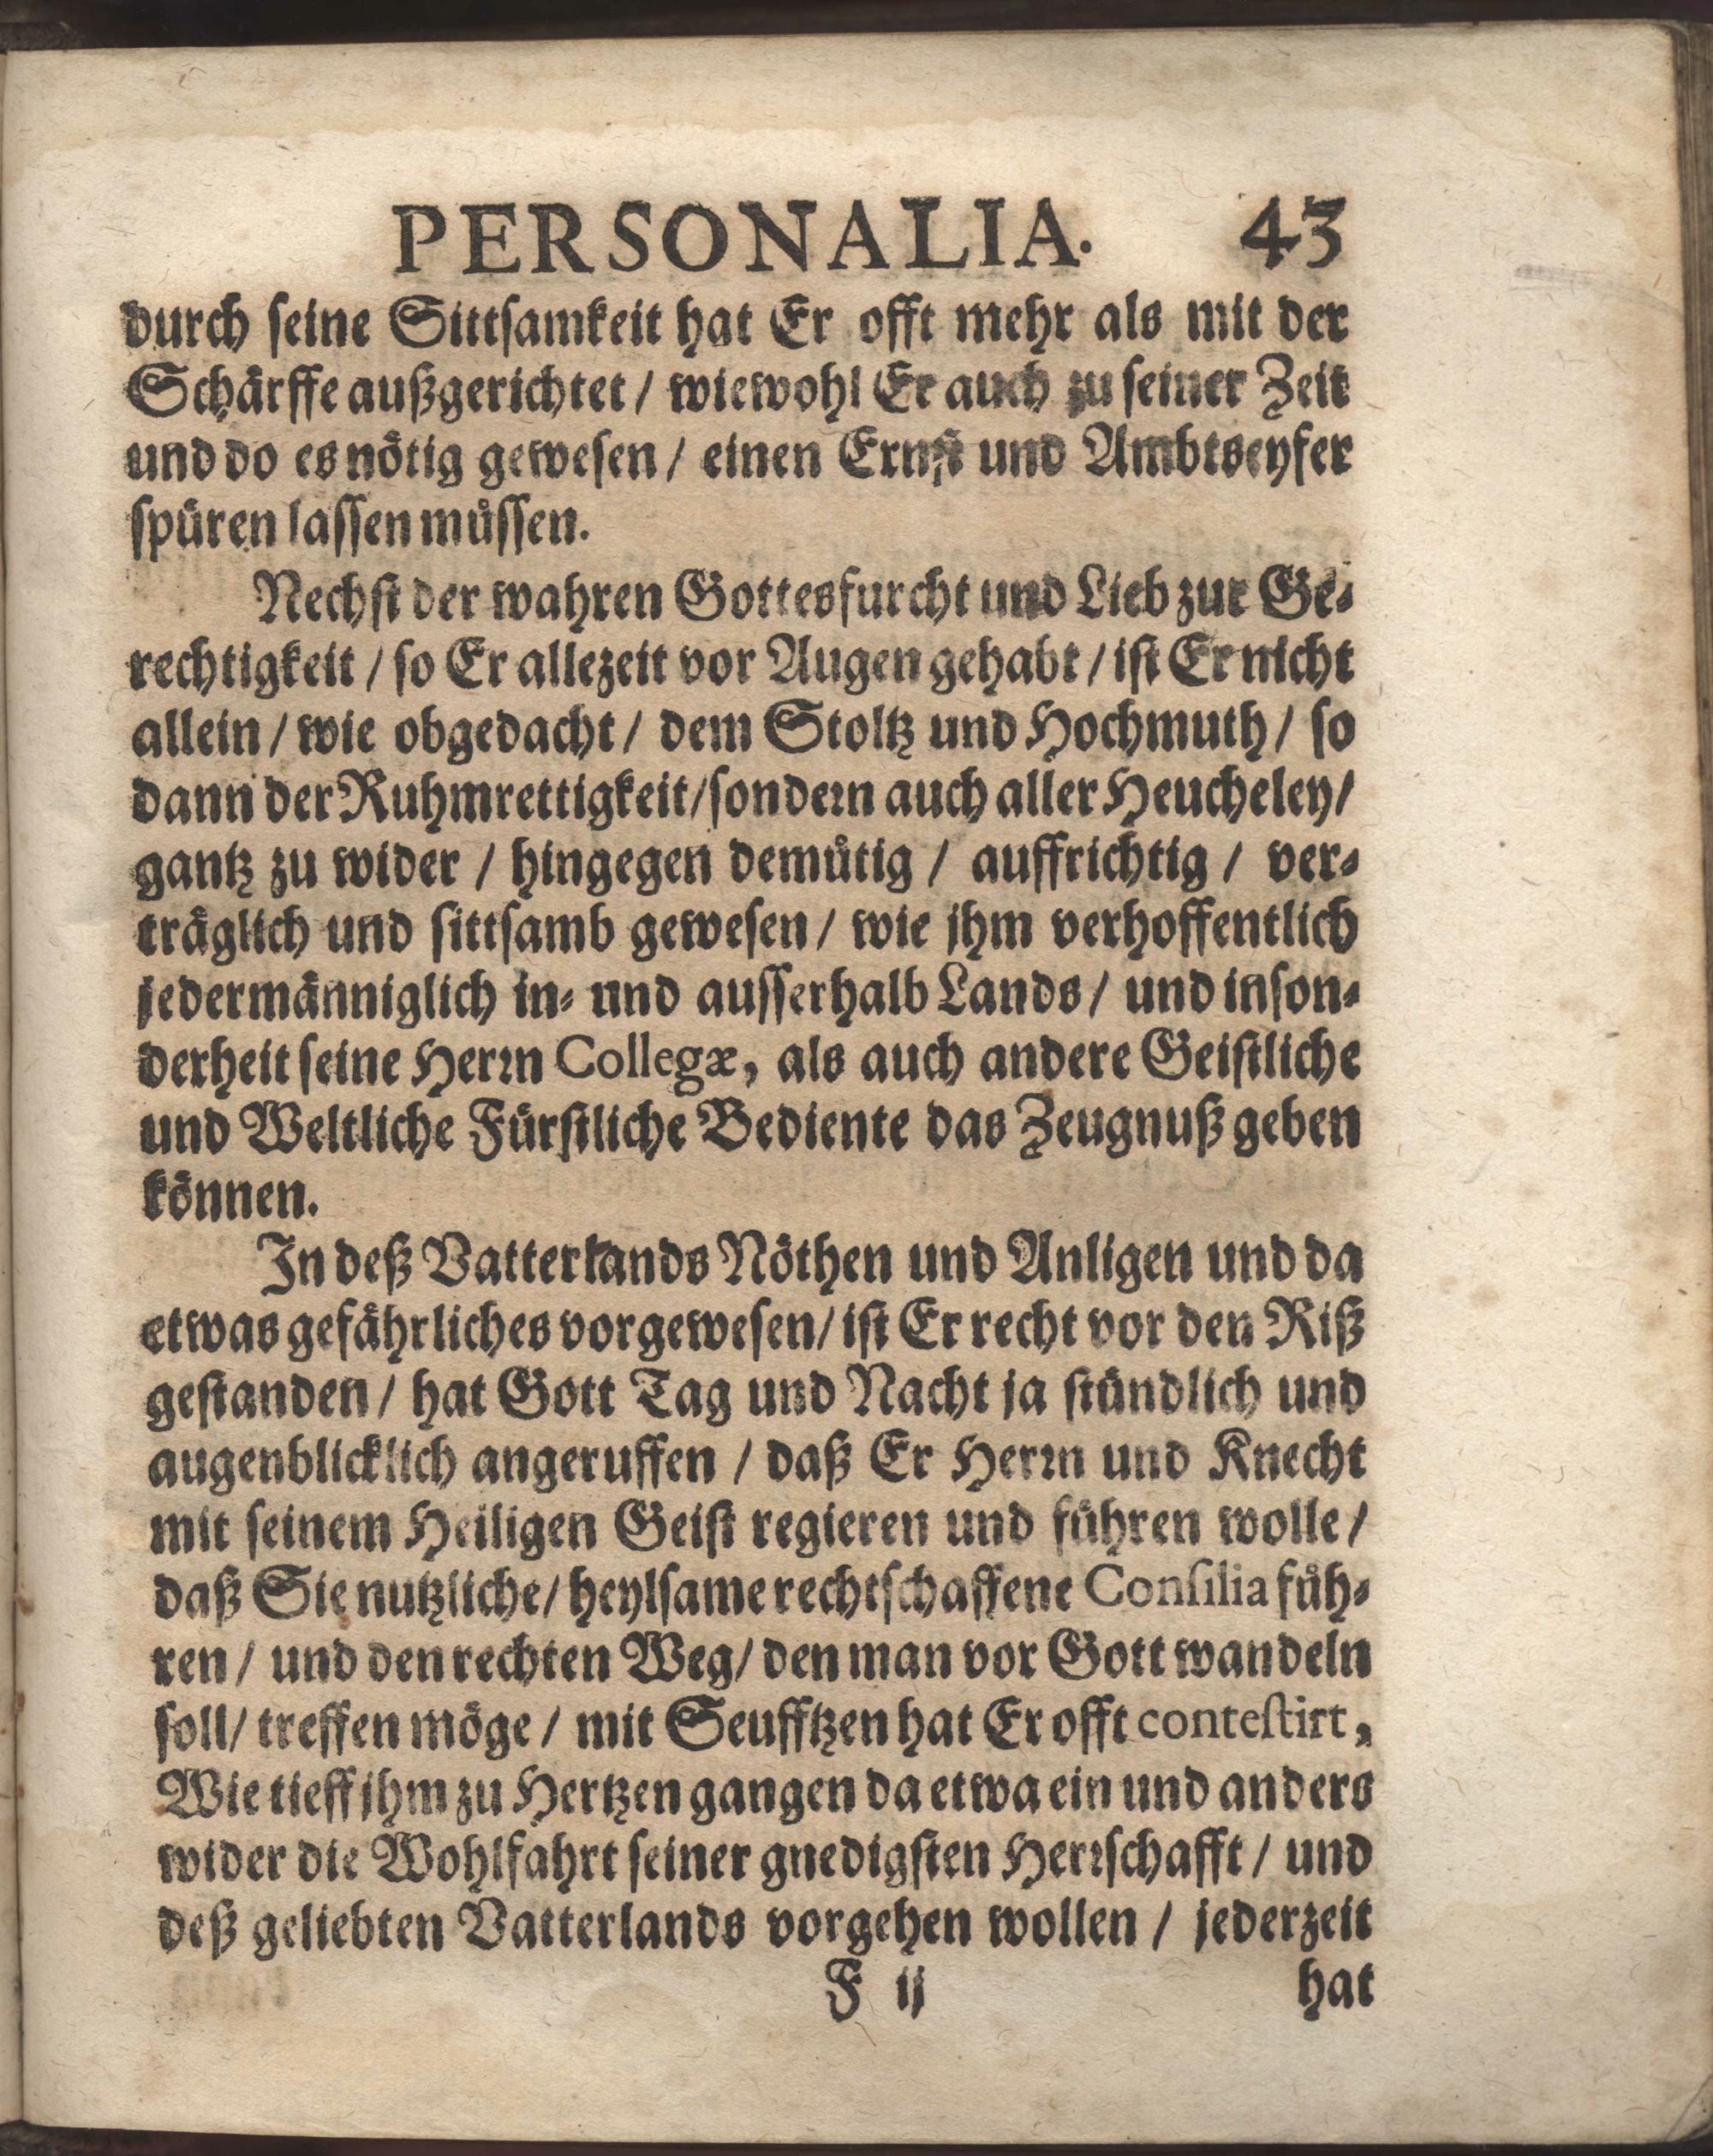 PERSONALIA. 43
durch seine Sittsamkeit hat Er offt mehr als mit der
Schärffe außgerichtet / wiewohl Er auch zu seiner Zeit
und do es nötig gewesen / einen Ernst und Ambtseyfer
spüren lassen müssen.
Nechst der wahren Gottesfurcht und Lieb zur Ge-
rechtigkeit / so Er allezeit vor Augen gehabt / ist Er nicht
allein / wie obgedacht / dem Stoltz und Hochmuth / so
dann der Ruhmrettigkeit / sondern auch aller Heucheley /
gantz zu wider / hingegen demütig / auffrichtig / ver-
träglich und sittsamb gewesen / wie jhm verhoffentlich
jedermänniglich in- und ausserhalb Lands / und inson-
derheit seine Herrn Collegæ, als auch andere Geistliche
und Weltliche Fürstliche Bediente das Zeugnuß geben
können.
In deß Vatterlands Nöthen und Anligen und da
etwas gefährliches vorgewesen / ist Er recht vor den Riß
gestanden / hat Gott Tag und Nacht ja stündlich und
augenblicklich angeruffen / daß Er Herrn und Knecht
mit seinem Heiligen Geist regieren und führen wolle /
daß Sie nutzliche / heylsame rechtschaffene Consilia füh-
ren / und den rechten Weg / den man vor Gott wandeln
soll / treffen möge / mit Seufftzen hat Er offt contestirt,
Wie tieff jhm zu Hertzen gangen da etwa ein und anders
wider die Wohlfahrt seiner gnedigsten Herrschafft / und
deß geliebten Vatterlands vorgehen wollen / jederzeit
F ij hat